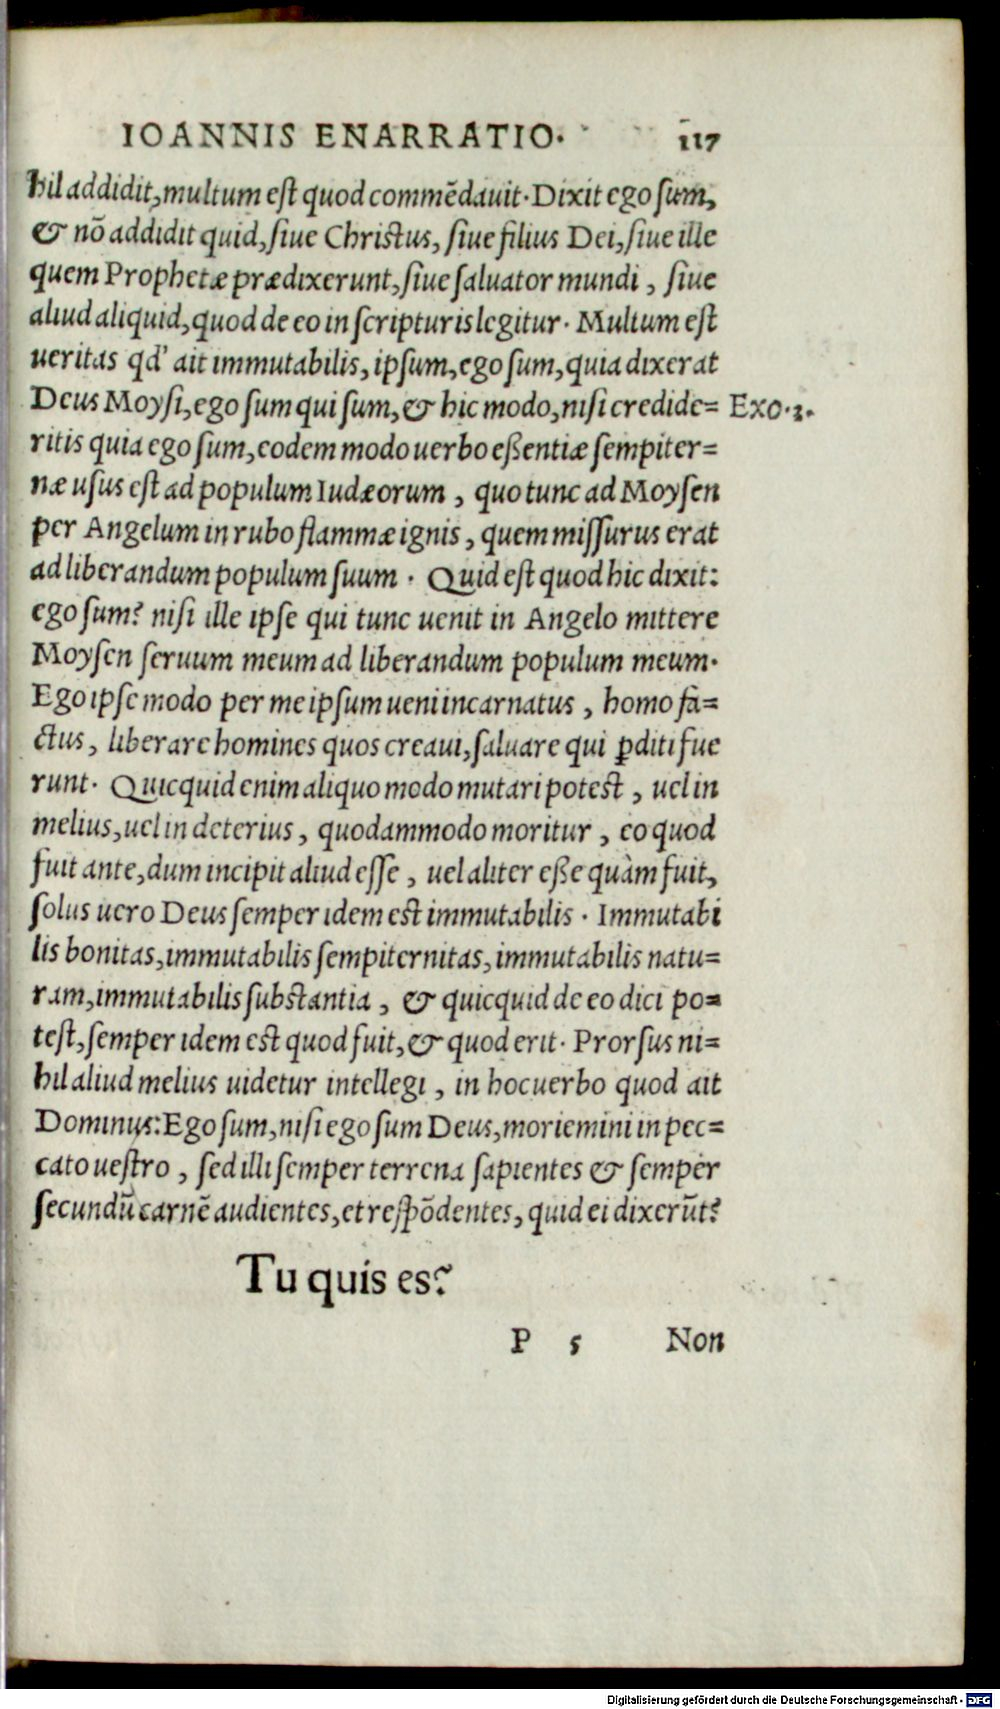 IOANNIS ENARRATIO. 117
hil addidit, multum est quod commẽdauit. Dixit ego sum,
& nõ addidit quid, siue Christus, siue filius Dei, siue ille
quem Prophetæ prædixerunt, siue saluator mundi, siue
aliud aliquid, quod de eo in scripturis legitur. Multum est
ueritas qd' ait immutabilis, ipsum, ego sum, quia dixerat
Deus Moysi, ego sum qui sum, & hic modo, nisi credide= Exo.3.
ritis quia ego sum, eodem modo uerbo eßentiæ sempiter=
næ usus est ad populum Iudæorum, quo tunc ad Moysen
per Angelum in rubo flammæ ignis, quem missurus erat
ad liberandum populum suum. Quid est quod hic dixit:
ego sum? nisi ille ipse qui tunc uenit in Angelo mittere
Moysen seruum meum ad liberandum populum meum.
Ego ipse modo per me ipsum ueni incarnatus, homo fa=
ctus, liberare homines quos creaui, saluare qui ꝑditi fue
runt. Quicquid enim aliquo modo mutari potest, uel in
melius, uel in deterius, quodammodo moritur, eo quod
fuit ante, dum incipit aliud esse, uel aliter eße quàm fuit,
solus uero Deus semper idem est immutabilis. Immutabi
lis bonitas, immutabilis sempiternitas, immutabilis natu=
ram, immutabilis substantia, & quicquid de eo dici po=
test, semper idem est quod fuit, & quod erit. Prorsus ni=
hil aliud melius uidetur intellegi, in hoc uerbo quod ait
Dominus: Ego sum, nisi ego sum Deus, moriemini in pec=
cato uestro, sed illi semper terrena sapientes & semper
secundũ carnẽ audientes, et respõdentes, quid ei dixerũt?
Tu quis es?
P 5 Non
Digitalisierung gefördert durch die Deutsche Forschungsgemeinschaft - DFG